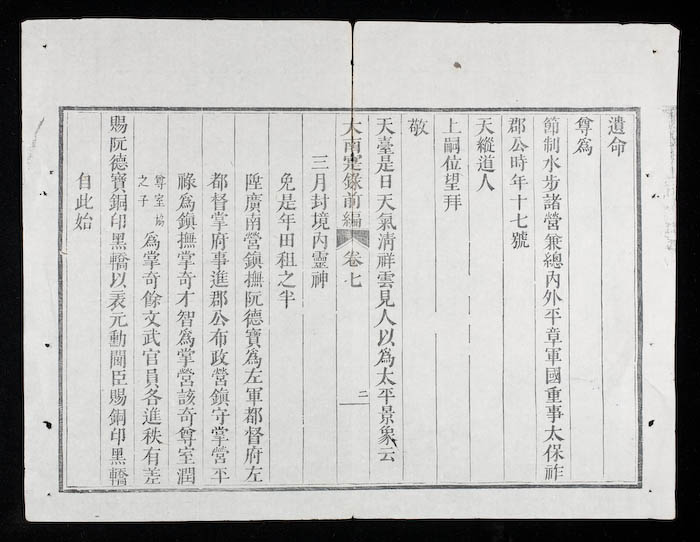 遺命
尊為
節制水步諸營兼總內外平章軍國重事太保祚
郡公時年十七號
天縱道人
上嗣位望拜
敬
天臺是日天氣清祥雲見人以為太平景象云
大南寔錄前編 卷七 二
三月封境內靈神
免是年田租之半
陞廣南營鎮撫阮德寶為左軍都督府左
都督掌府事進郡公布政營鎮守掌營平
祿為鎮撫掌奇才智為掌營該奇尊室潤
尊室協之子為掌奇餘文武官員各進秩有差
賜阮德寶銅印黑轎以表元勳閫臣賜銅印黑轎
自此始